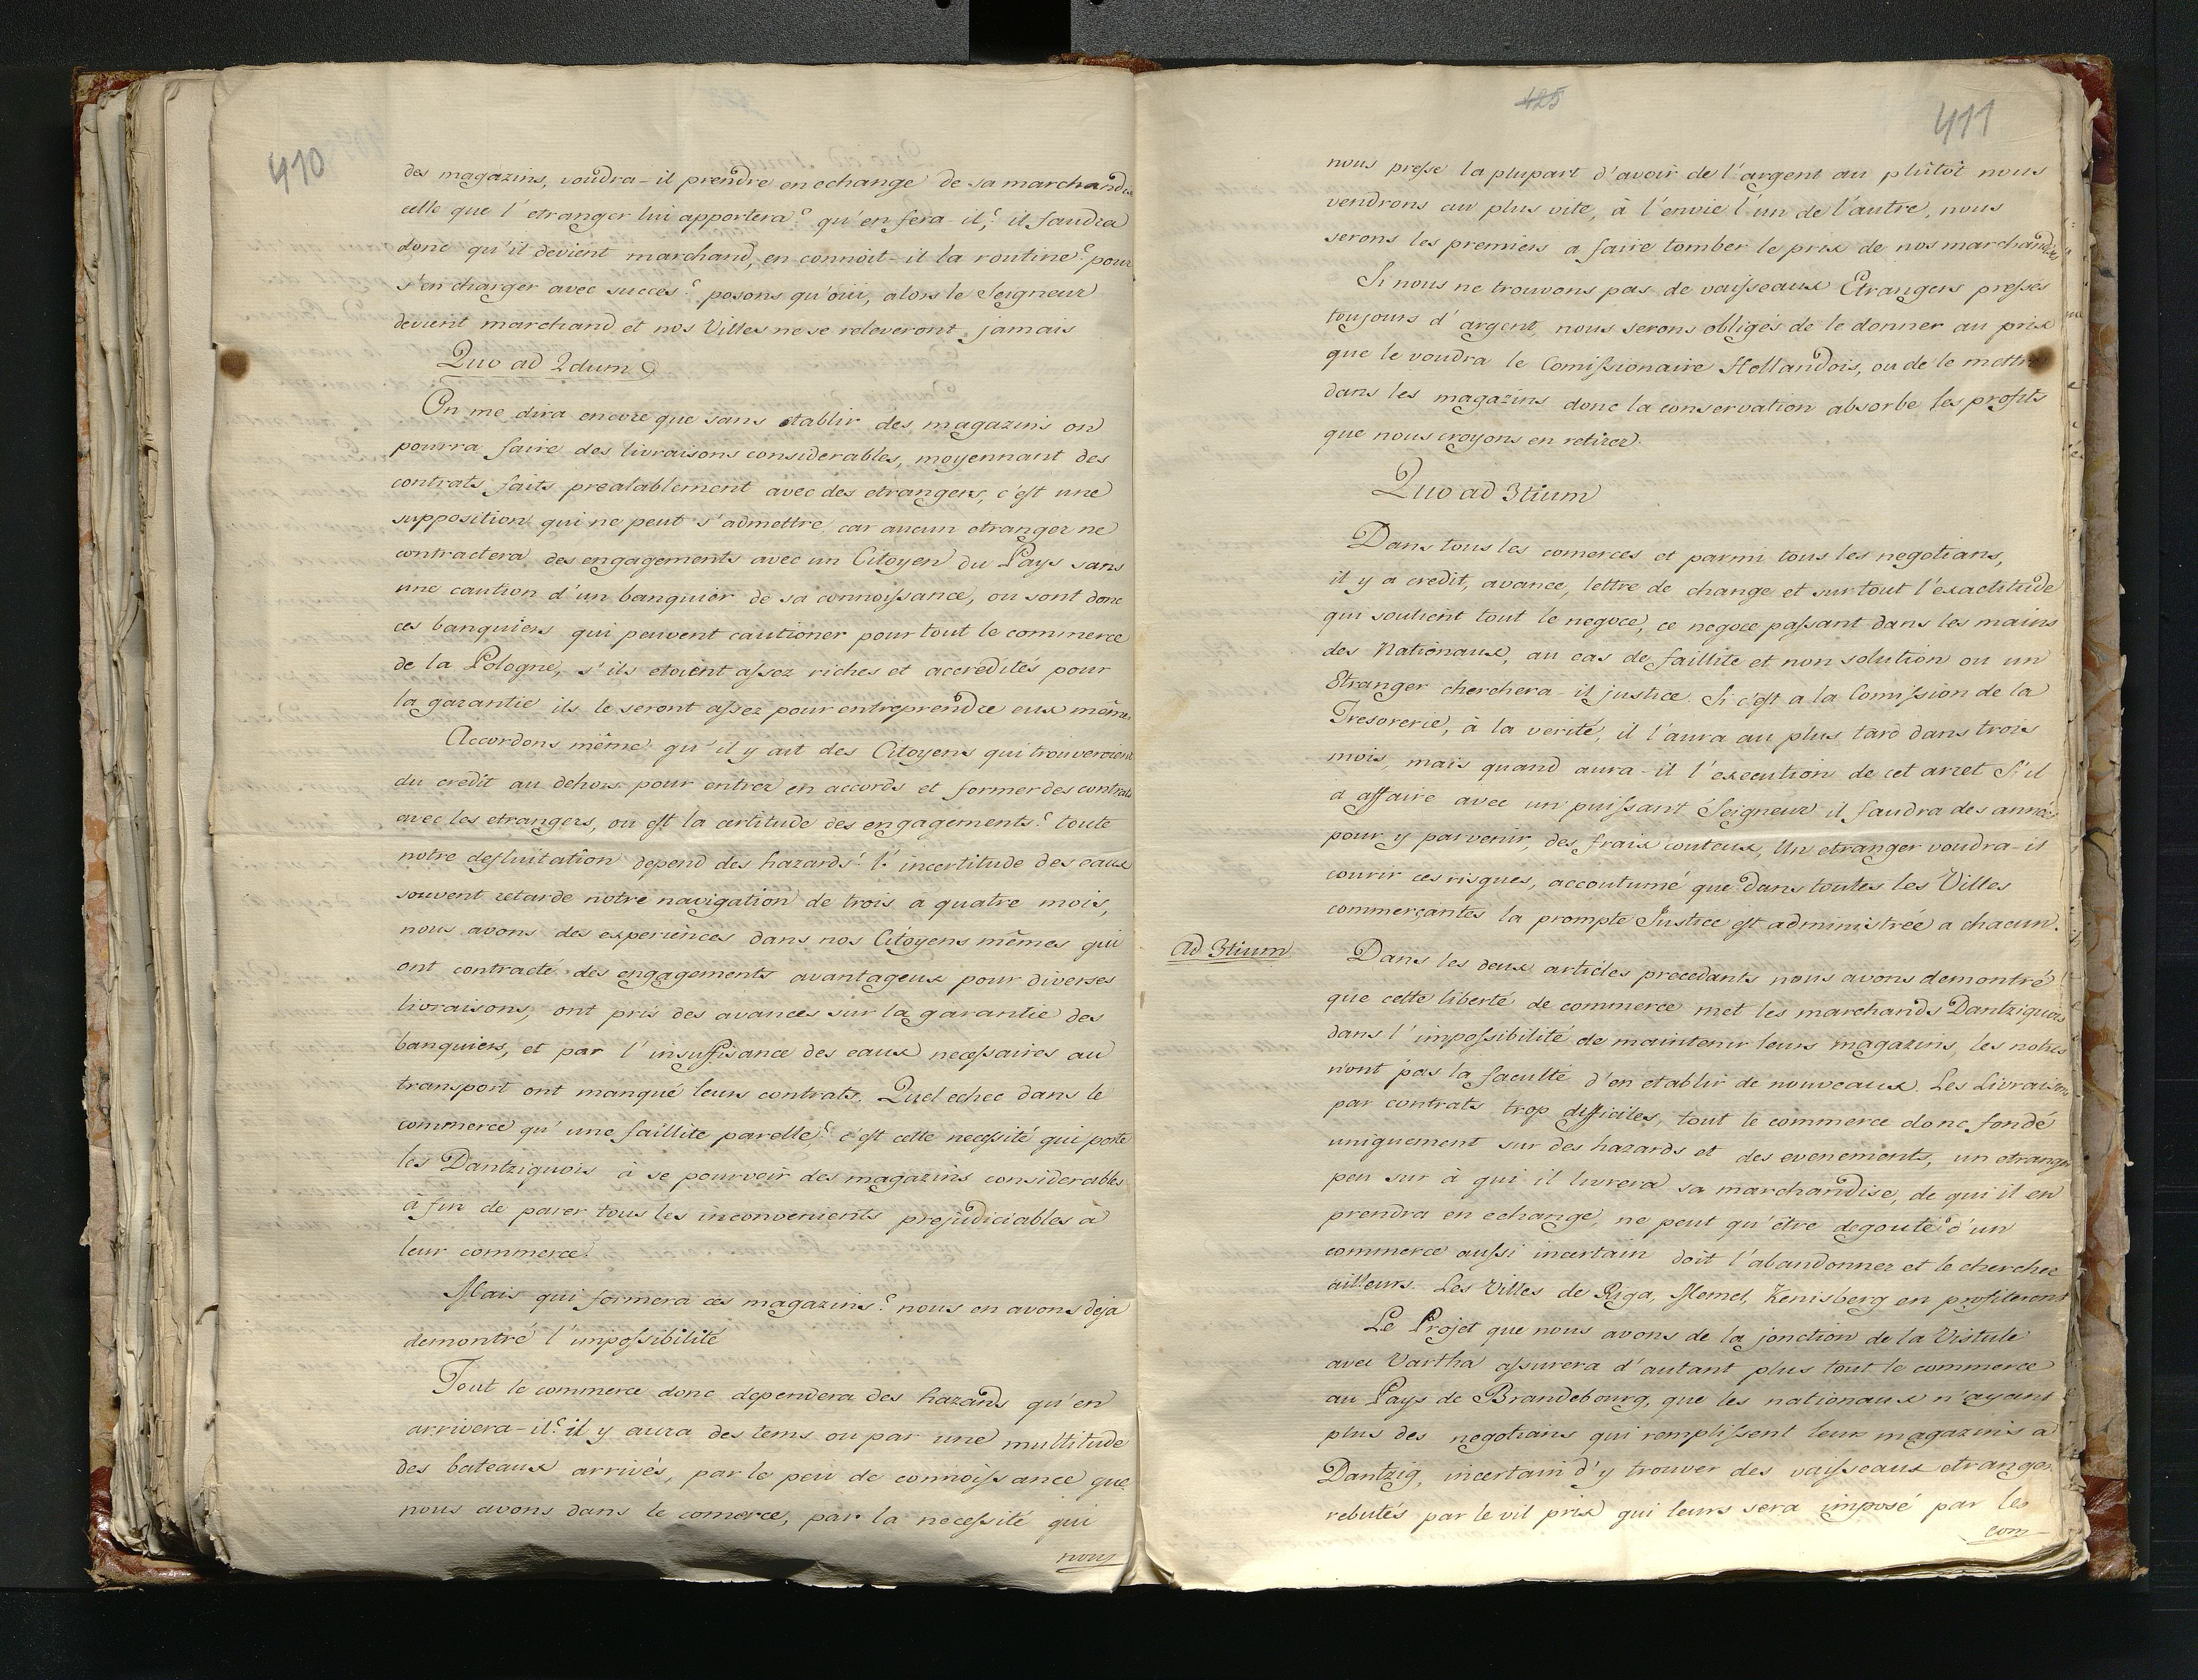 410
des magazins, voudra-il prendre en echange de sa marchandise
celle que l'etranger lui apportera? qu'en fera il? il faudra
donc qu'il devient marchand, en connoit-il la routine? pour
s'en charger avec succes? posons qu'oui, alors le Seigneur
devient marchand et nos Villes ne se releveront jamais
Quo ad 2dum
On me dira encore que sans etablir des magazins on
pourra faire des livraisons considerables, moyennant des
contrats faits prealablement avec des etrangers, c'est une
supposition qui ne peut s'admettre, car aucun etranger ne
contractera des engagements avec un Citoyen du Pays sans
une caution d'un banquier de sa connoissance, ou sont donc
ces banquiers qui peuvent cautioner pour tout le commerce
de la Pologne, s'ils etoient assez riches et accredités pour
la garantie ils le seront assez pour entreprendre eux même
Accordons même qu'il y ait des Citoyens qui trouveroient
du credit au dehors pour entrer en accords et former des contrats
avec les etrangers, ou est la certitude des engagements? toute
notre defluitation depend des hazards! l'incertitude des eaux
souvent retarde notre navigation de trois a quatre mois,
nous avons des experiences dans nos Citoyens mêmes qui
ont contracté des engagements avantageux pour diverses
livraisons, ont pris des avances sur la garantie des
banquiers, et par l'insuffisance des eaux necessaires au
transport ont manqué leurs contrats. Quel echec dans le
commerce qu'une faillite parelle? c'est cette necessité qui porte
les Dantziquois à se pourvoir des magazins considerables
à fin de parer tous les inconvenients prejudiciables à
leur commerce.
Mais qui formera ces magazins? nous en avons deja
demontré l'impossibilité
Tout le commerce donc dependera des hazards qu'en
arrivera-il? il y aura des tems ou par une multitude
des bateaux arrivés, par le peu de connoissance que
nous avons dans le comerce, par la necessité qui
nous
425
411
nous presse la plupart d'avoir de l'argent au plûtôt nous
vendrons au plus vite, à l'envie l'un de l'autre, nous
serons les premiers a faire tomber le prix de nos marchandises
Si nous ne trouvons pas de vaisseaux Etrangers pressés
toujours d'argent, nous serons obligés de le donner au prix
que le voudra le Comissionaire Hollandois, ou de le mettre
dans les magazins donc la conservation absorbe les profits
que nous croyons en retirer.
Quo ad 3tium
Dans tous les comerces et parmi tous les negotians,
il y a credit, avance, lettre de change et surtout l'exactitude
qui soutient tout le negoce, ce negoce passant dans les mains
des Nationaux, au cas de faillite et non solution ou un
Etranger cherchera-il justice. Si c'est a la Comission de la
Tresorerie, à la verité, il l'aura au plus tard dans trois
mois, mais quand aura-il l'execution de cet arret S'il
a affaire avec un puissant Seigneur il faudra des années
pour y parvenir, des fraix couteux, Un etranger voudra-il
courir ces risques, accoutumé que dans toutes les Villes
commerçantes la prompte Justice est administrée a chacun.
Ad 3tium
Dans les deux articles precedants nous avons demontré
que cette liberté de commerce met les marchands Dantziquois
dans l'impossibilité de maintenir leurs magazins, les notres
n'ont pas la faculté d'en etablir de nouveaux. Les Livraisons
par contrats trop difficiles, tout le commerce donc fondé
uniquement sur des hazards et des evenements, un etranger
peu sur à qui il livrera sa marchandise, de qui il en
prendra en echange, ne peut qu'être degouté d'un
commerce aussi incertain doit l'abandonner et le chercher
ailleurs. Les Villes de Riga, Memel, Kenisberg en profiteront
Le Projet que nous avons de la jonction de la Vistule
avec Vartha assurera d'autant plus tout le commerce
au Pays de Brandebourg, que les nationaux n'ayant
plus des negotians qui remplissent leurs magazins a
Dantzig, incertain d'y trouver des vaisseaux etrangers
rebutés par le vil prix qui leurs sera imposé par les
com